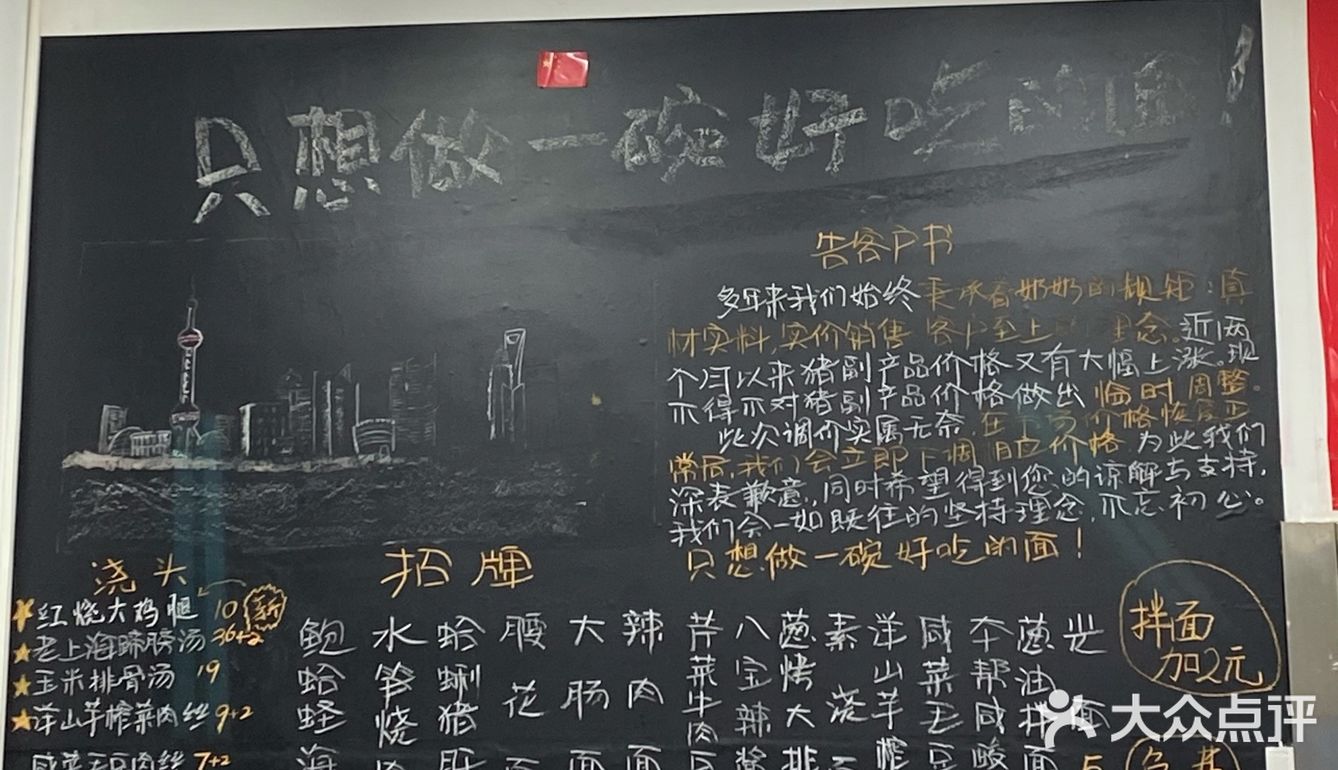 只想做一碗好吃的面！
告客户书
多年来我们始终秉承着奶奶的规矩：真
材实料，实价销售 客户至上 理念。近两
个月以来猪副产品价格又有大幅上涨。现
不得不对猪副产品价格做出 临时调整。
此次调价实属无奈，在 价格恢复正
常后，我们会立即下调相应价格。为此我们
深表歉意，同时希望得到您的谅解与支持，
我们会一如既往的坚持理念，不忘初心。
只想做一碗好吃的面！
浇头
红烧大鸡腿 10 新
老上海蹄膀汤 36+2
玉米排骨汤 19
洋山芋榨菜肉丝 9+2
咸菜毛豆肉丝 7+2
招牌
鲍蛤蛏海
水笋烧肉
蛤蜊猪肝
腰花面
大肠面
辣肉面
芹菜牛肉
八宝辣酱
葱烤大排
素浇面
洋山芋榨
咸菜毛豆
本帮咸酸
葱油拌面
光面 5
拌面
加2元
大众点评